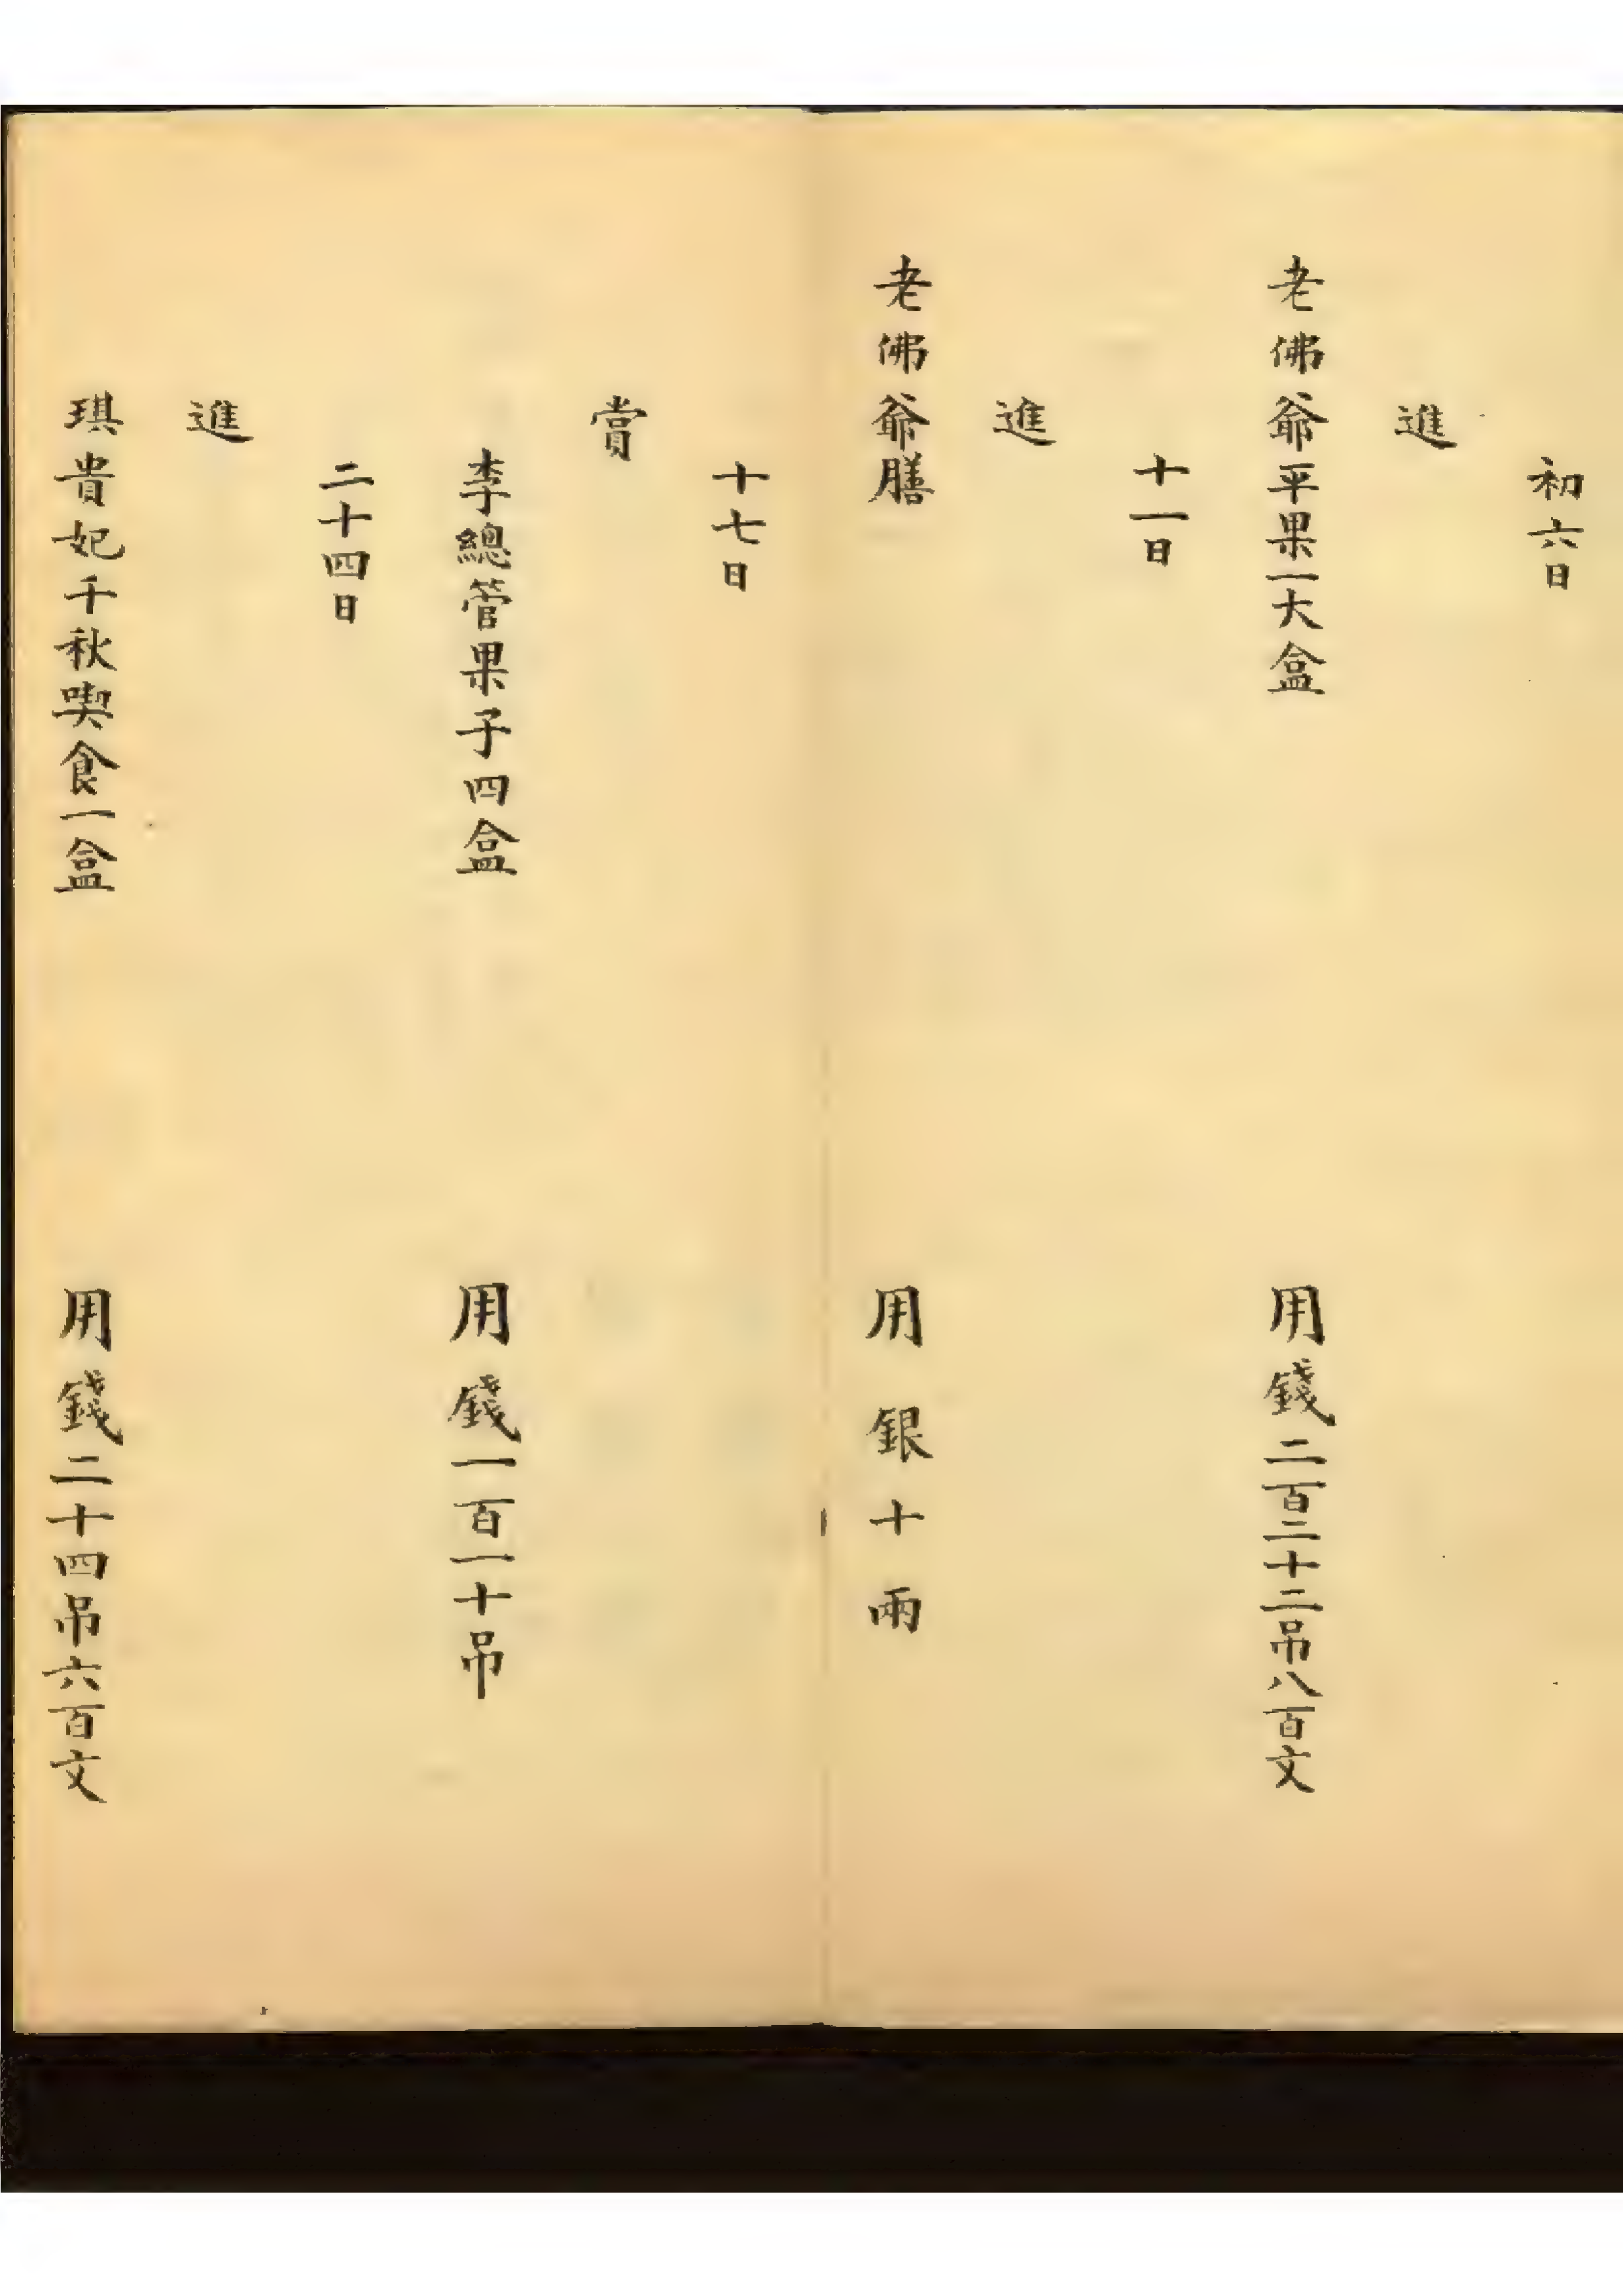 初六日
進
老佛爺平果一大盒 用錢二百二十二吊八百文
十一日
進
老佛爺膳 用銀十兩
十七日
賞
李總管果子四盒 用錢一百一十吊
二十四日
進
琪貴妃千秋喫食一盒 用錢二十四吊六百文